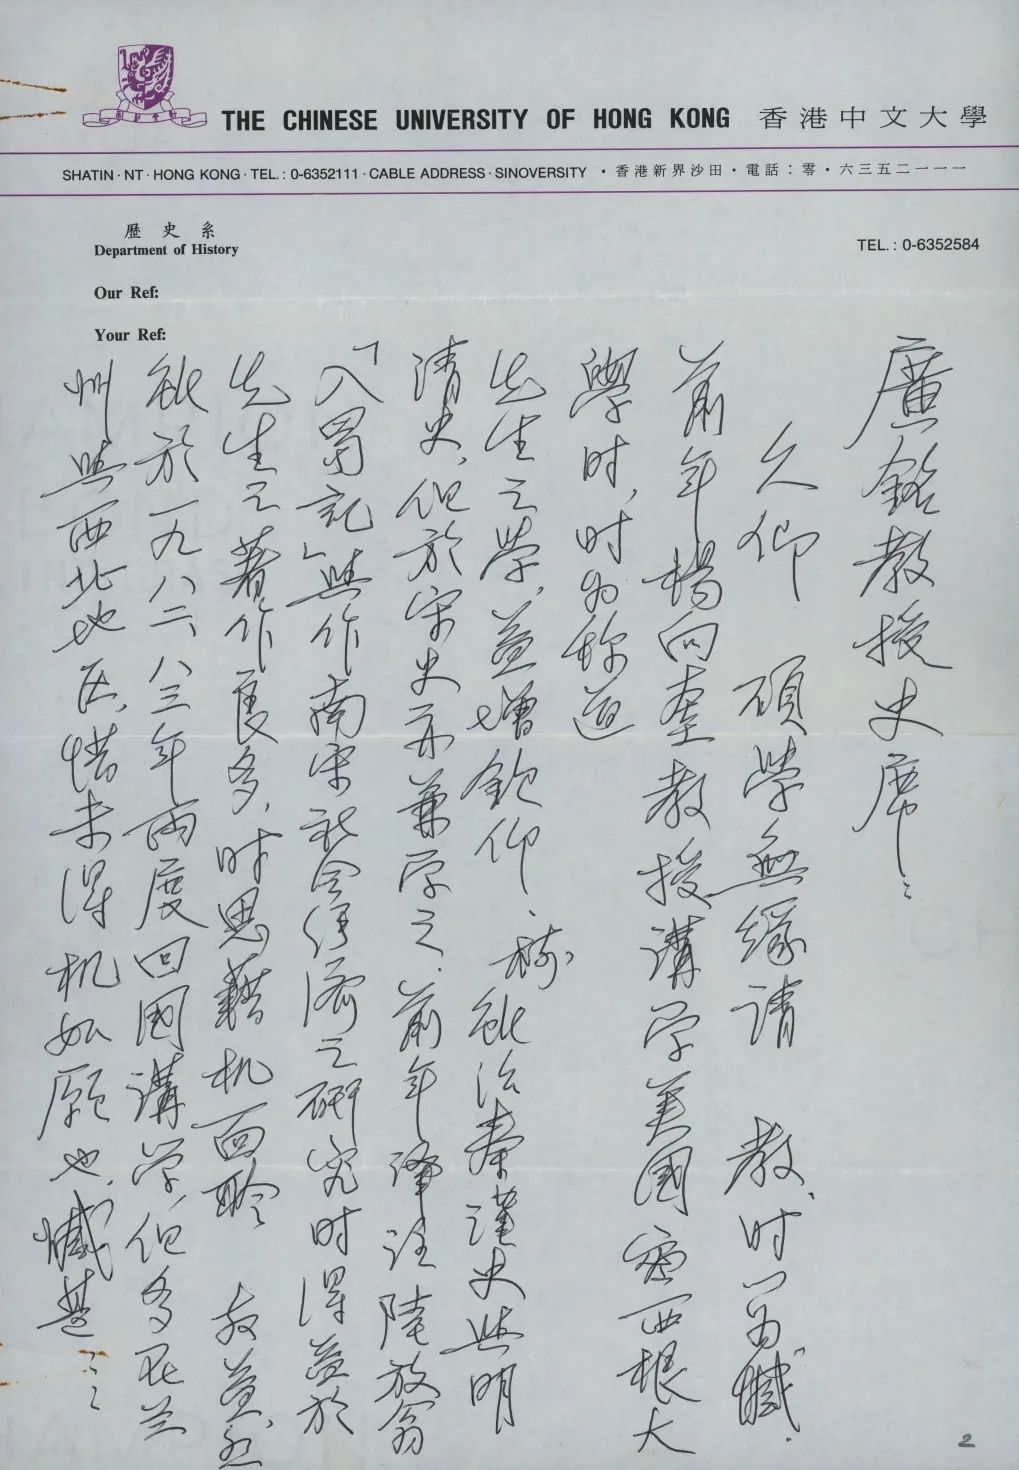 THE CHINESE UNIVERSITY OF HONG KONG 香港中文大學
SHATIN · NT · HONG KONG · TEL.: 0-6352111 · CABLE ADDRESS · SINOVERSITY · 香港新界沙田 · 電話：零·六三五二一一一
歷史系
Department of History
TEL.: 0-6352584
Our Ref:
Your Ref:
廣銘教授史席：
久仰 碩學無緣請 教，时以為憾．
前年楊向奎教授講学美國密西根大
學时，时为称道
先生之學，益增欽仰．秋 治秦漢史與明
清史，但於宋史亦兼学之．前年譯註陸放翁
「入蜀記」與作南宋社会经濟之研究时得益於
先生之著作良多，时思藉机面聆 教益，
於一九八二、八三年两度回國講学，但多在兰
州與西北地区，惜未得机如愿也，憾甚：：
2